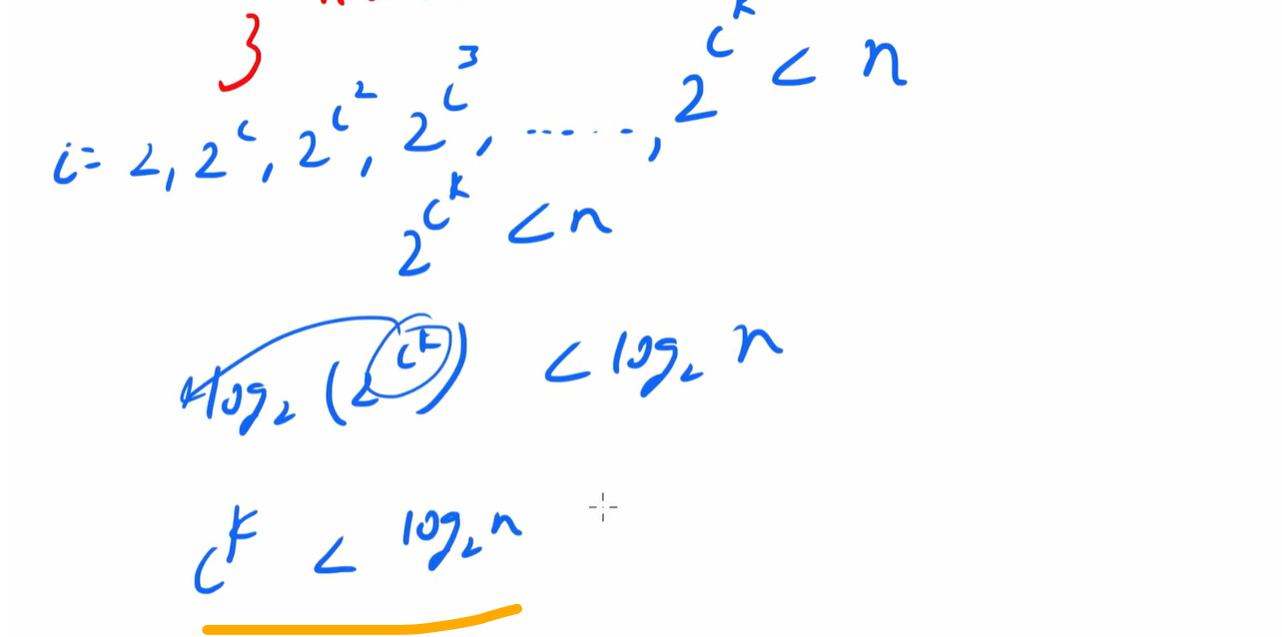 }
i = 2, 2^c, 2^c^2, 2^c^3, ......, 2^c^k < n
2^c^k < n
log₂ (2^c^k) < log₂ n
c^k < log₂ n